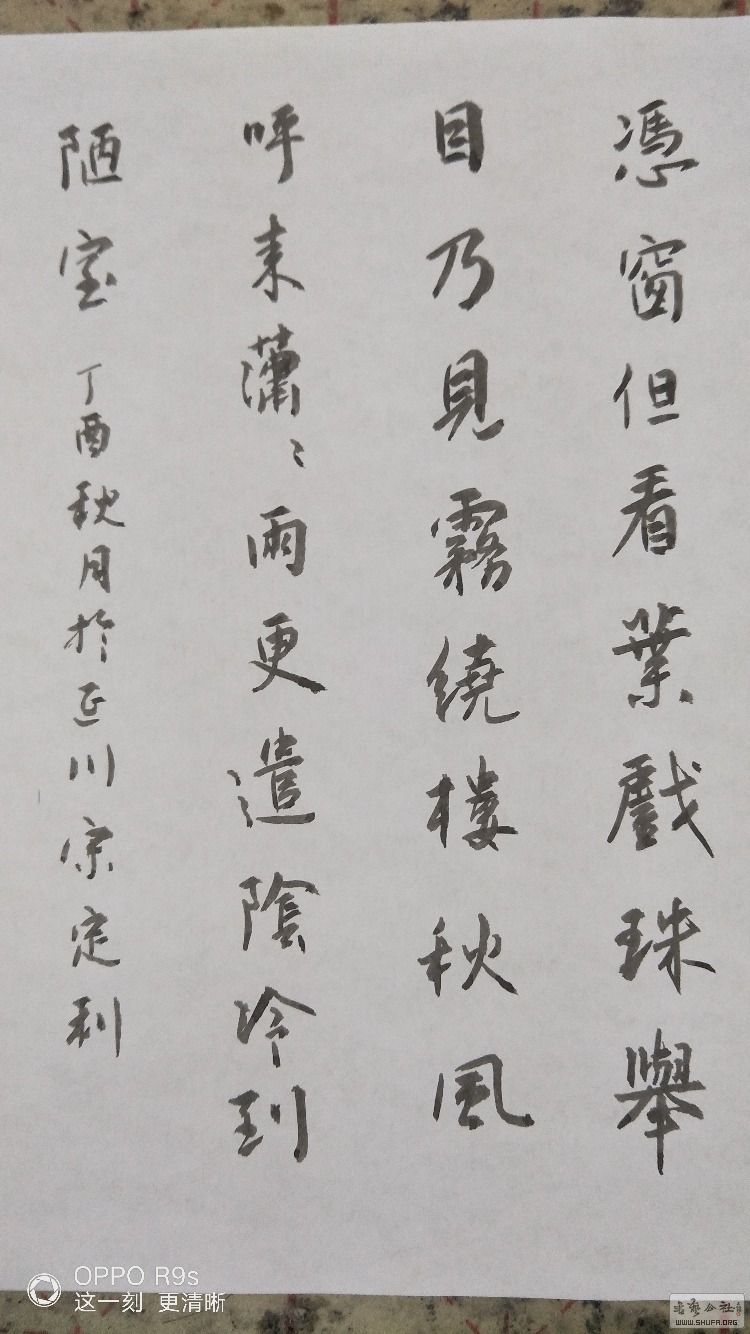 憑窗但看葉戲珠舉
目乃見霧繞樓秋風
呼來瀟〻雨更遣陰冷到
陋室 丁酉秋月於延川宗定利
OPPO R9s
这一刻 更清晰
WWW.SHUFA.ORG